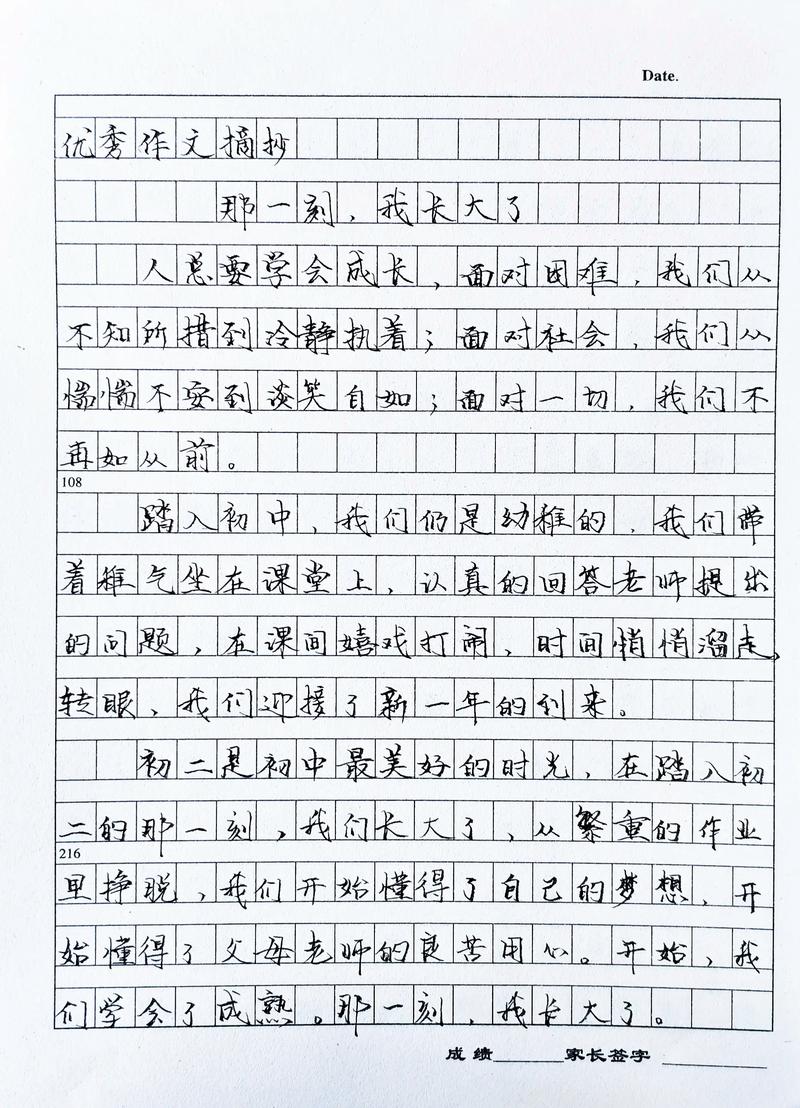 Date.
优秀作文摘抄
那一刻，我长大了
人总要学会成长，面对困难，我们从
不知所措到冷静执着；面对社会，我们从
惴惴不安到谈笑自如；面对一切，我们不
再如从前。
108
踏入初中，我们仍是幼稚的，我们带
着稚气坐在课堂上，认真的回答老师提出
的问题，在课间嬉戏打闹，时间悄悄溜走，
转眼，我们迎接了新一年的到来。
初二是初中最美好的时光，在踏入初
二的那一刻，我们长大了，从繁重的作业
216
里挣脱，我们开始懂得了自己的梦想，开
始懂得了父母老师的良苦用心。开始，我
们学会了成熟。那一刻，我长大了。
成绩______家长签字 _________